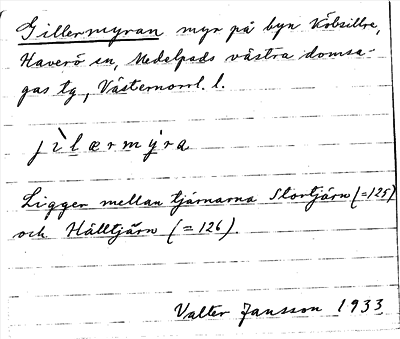 Gillermyran myr på byn Kölsillre,
Haverö sn, Medelpads västra domsa-
gas tg, Västernorrl. l.
jìlærmýra
Ligger mellan tjärnarna Stortjärn (=125)
och Hålltjärn (=126).
Valter Jansson 1933